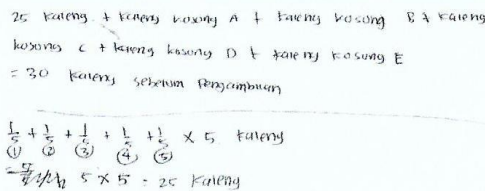 25 kaleng + kaleng kosong A + kaleng kosong B + kaleng
kosong C + kaleng kosong D + kaleng kosong E
= 30 kaleng sebelum pengambilan
1/5 + 1/5 + 1/5 + 1/5 + 1/5 × 5 kaleng
① ② ③ ④ ⑤
5 × 5 = 25 kaleng